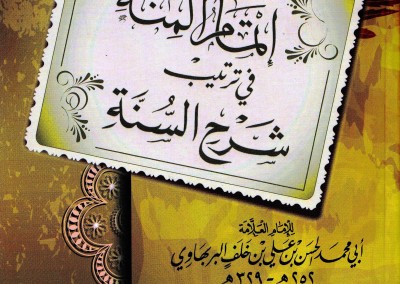 إتمام المنة
في ترتيب
شرح السنة
للإمام العلامة
أبي محمد الحسن بن علي بن خلف البربهاوي
٢٥٢هـ - ٣٢٩هـ